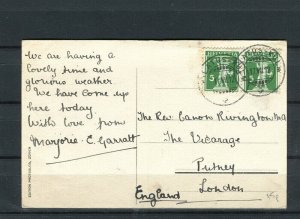 We are having a
lovely time and
glorious weather
We have come up
here today
With love from
Marjorie. E. Garratt
The Rev. Canon Rivington M.A
The Vicarage
Putney
London
England
HELVETIA
5